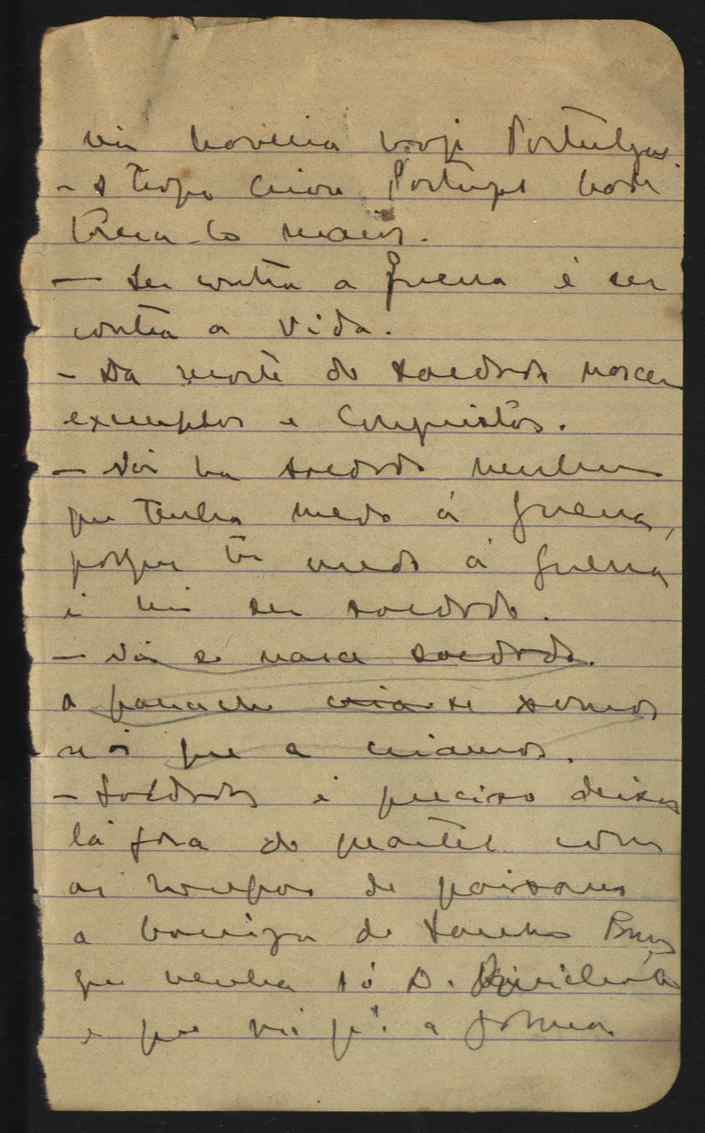 não haveria hoje Portugal.
- A tropa criou Portugal hade
torna-lo maior.
— Ser contra a guerra é ser
contra a vida.
- Da morte do soldado nascem
exemplos e conquistas.
— Não ha soldado nenhum
que tenha medo á guerra,
porque ter medo á guerra
é não ser soldado.
— Não se nasce soldado.
a criase somos
nós que a criamos.
- Soldados é preciso deixar
lá fóra do quartel com
as roupas de paisano
a barriga de Sancho Pança
que venha só D. Quichote
e que vá p'ª a forma.